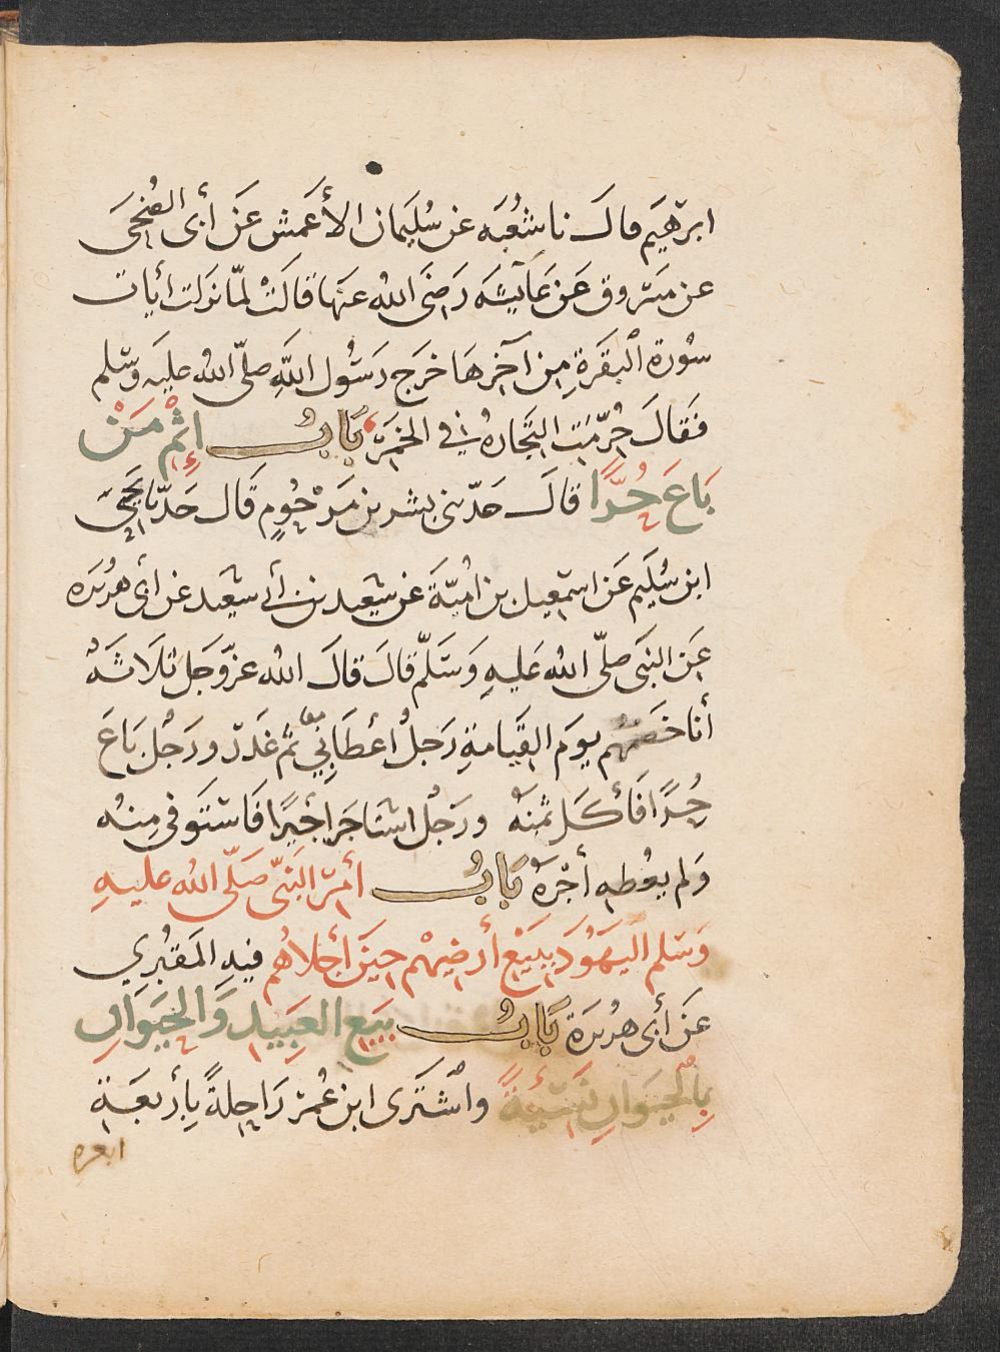 ابرهيم قال نا شُعبَه عن سُليمان الأعمش عَن أبي الضُحَى
عن مَسروق عَن عَايشَه رَضيَ الله عنها قالتْ لمّا نزلت أيات
سُورة البقَرةِ مِن آخرها خرَج رَسُول اللهِ صلّى اللهُ عليَه وَسّلم
فَقالَ حُرّمَت التِّجارةُ في الخمَرْ بَابُ إثْم مَنْ
بَاعَ حُرًّا قالَ حَدّثنى بشر بن مَرْحُومٍ قَال حَدّثنا يحيَى
ابن سُليَم عَن اسمعيل بن امُيّةَ عن سَعيد بن أبي سَعيد عن أبي هريرَه
عَن النبيَ صلّى الله عَليهِ وَسَلمّ قَالَ قالَ الله عزّوَجَل ثلاَثهٌ
أنا خَصمُهم يوَم القيَامةِ رَجلٌ أعطَا بي ثم غَدرَ ورَجُل بَاعَ
حُرًّا فَأكَل ثمنَهُ ورَجُل استاجَر أجيرًا فَاستَوَفى مِنهُ
وَلم يعُطهِ أجْرَهُ بَابُ أمرِ النبَيّ صَلّى الله عليهِ
وَسَلم اليَهوُدَ ببَيْع أرَضيهْم حينَ أجلاهُم فيهِ المَقبُرِي
عَن أبي هريرَة بَابُ بيَع العَبِيدِ وَالحَيَوَانِ
بِالْحيَوَانِ نَسِيْئةً واشْتَرى ابن عُمرَ رَاحِلةً بِأربعَةِ
ابعره